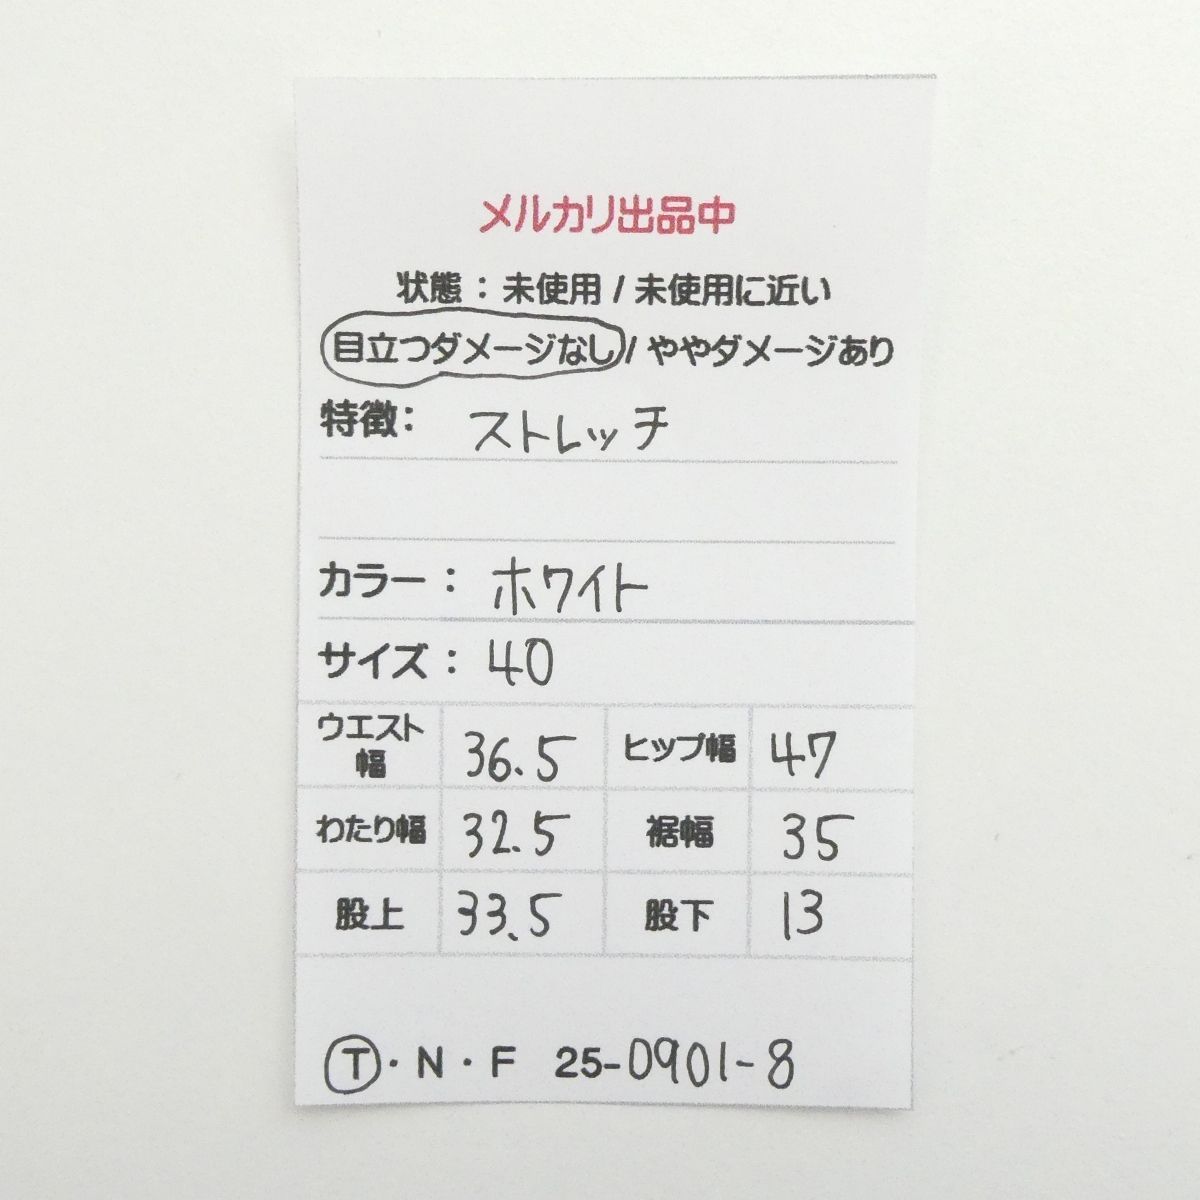 メルカリ出品中
状態：未使用 / 未使用に近い
目立つダメージなし / ややダメージあり
特徴: ストレッチ
カラー： ホワイト
サイズ： 40
ウエスト幅 36.5 ヒップ幅 47
わたり幅 32.5 裾幅 35
股上 33.5 股下 13
T・N・F 25-0901-8